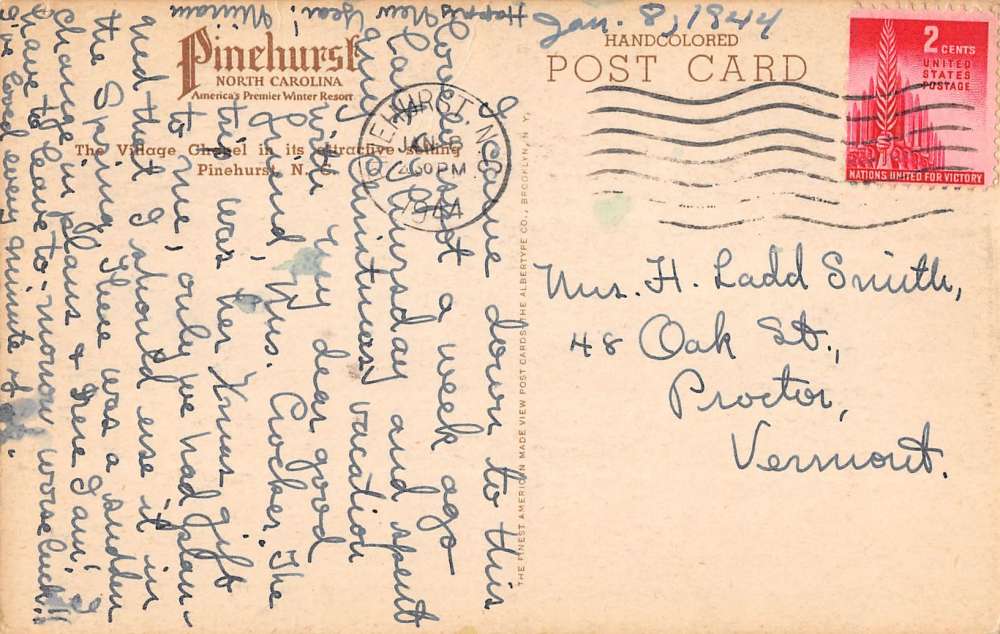 Jan. 8, 1944
Pinehurst
NORTH CAROLINA
America's Premier Winter Resort
The Village Chapel in its attractive setting
Pinehurst, N. C.
HANDCOLORED
POST CARD
PINEHURST, N.C.
JAN 8
PM
1944
2 CENTS
UNITED
STATES
POSTAGE
NATIONS UNITED FOR VICTORY
I came down to this
lovely spot a week ago
last Thursday and spent
my Christmas vacation
with my dear good
friend, Mrs. Crocker. The
trip was her Xmas gift
to me, only we had plan-
ned that I should use it in
the Spring. There was a sudden
change in plans & here I am! I
have to leave to-morrow worse luck!!
I've loved every minute of it.
Happy New Year! Miriam
THE FINEST AMERICAN MADE VIEW POST CARDS THE ALBERTYPE CO., BROOKLYN, N. Y.
Mrs. H. Ladd Smith,
48 Oak St.,
Proctor,
Vermont.